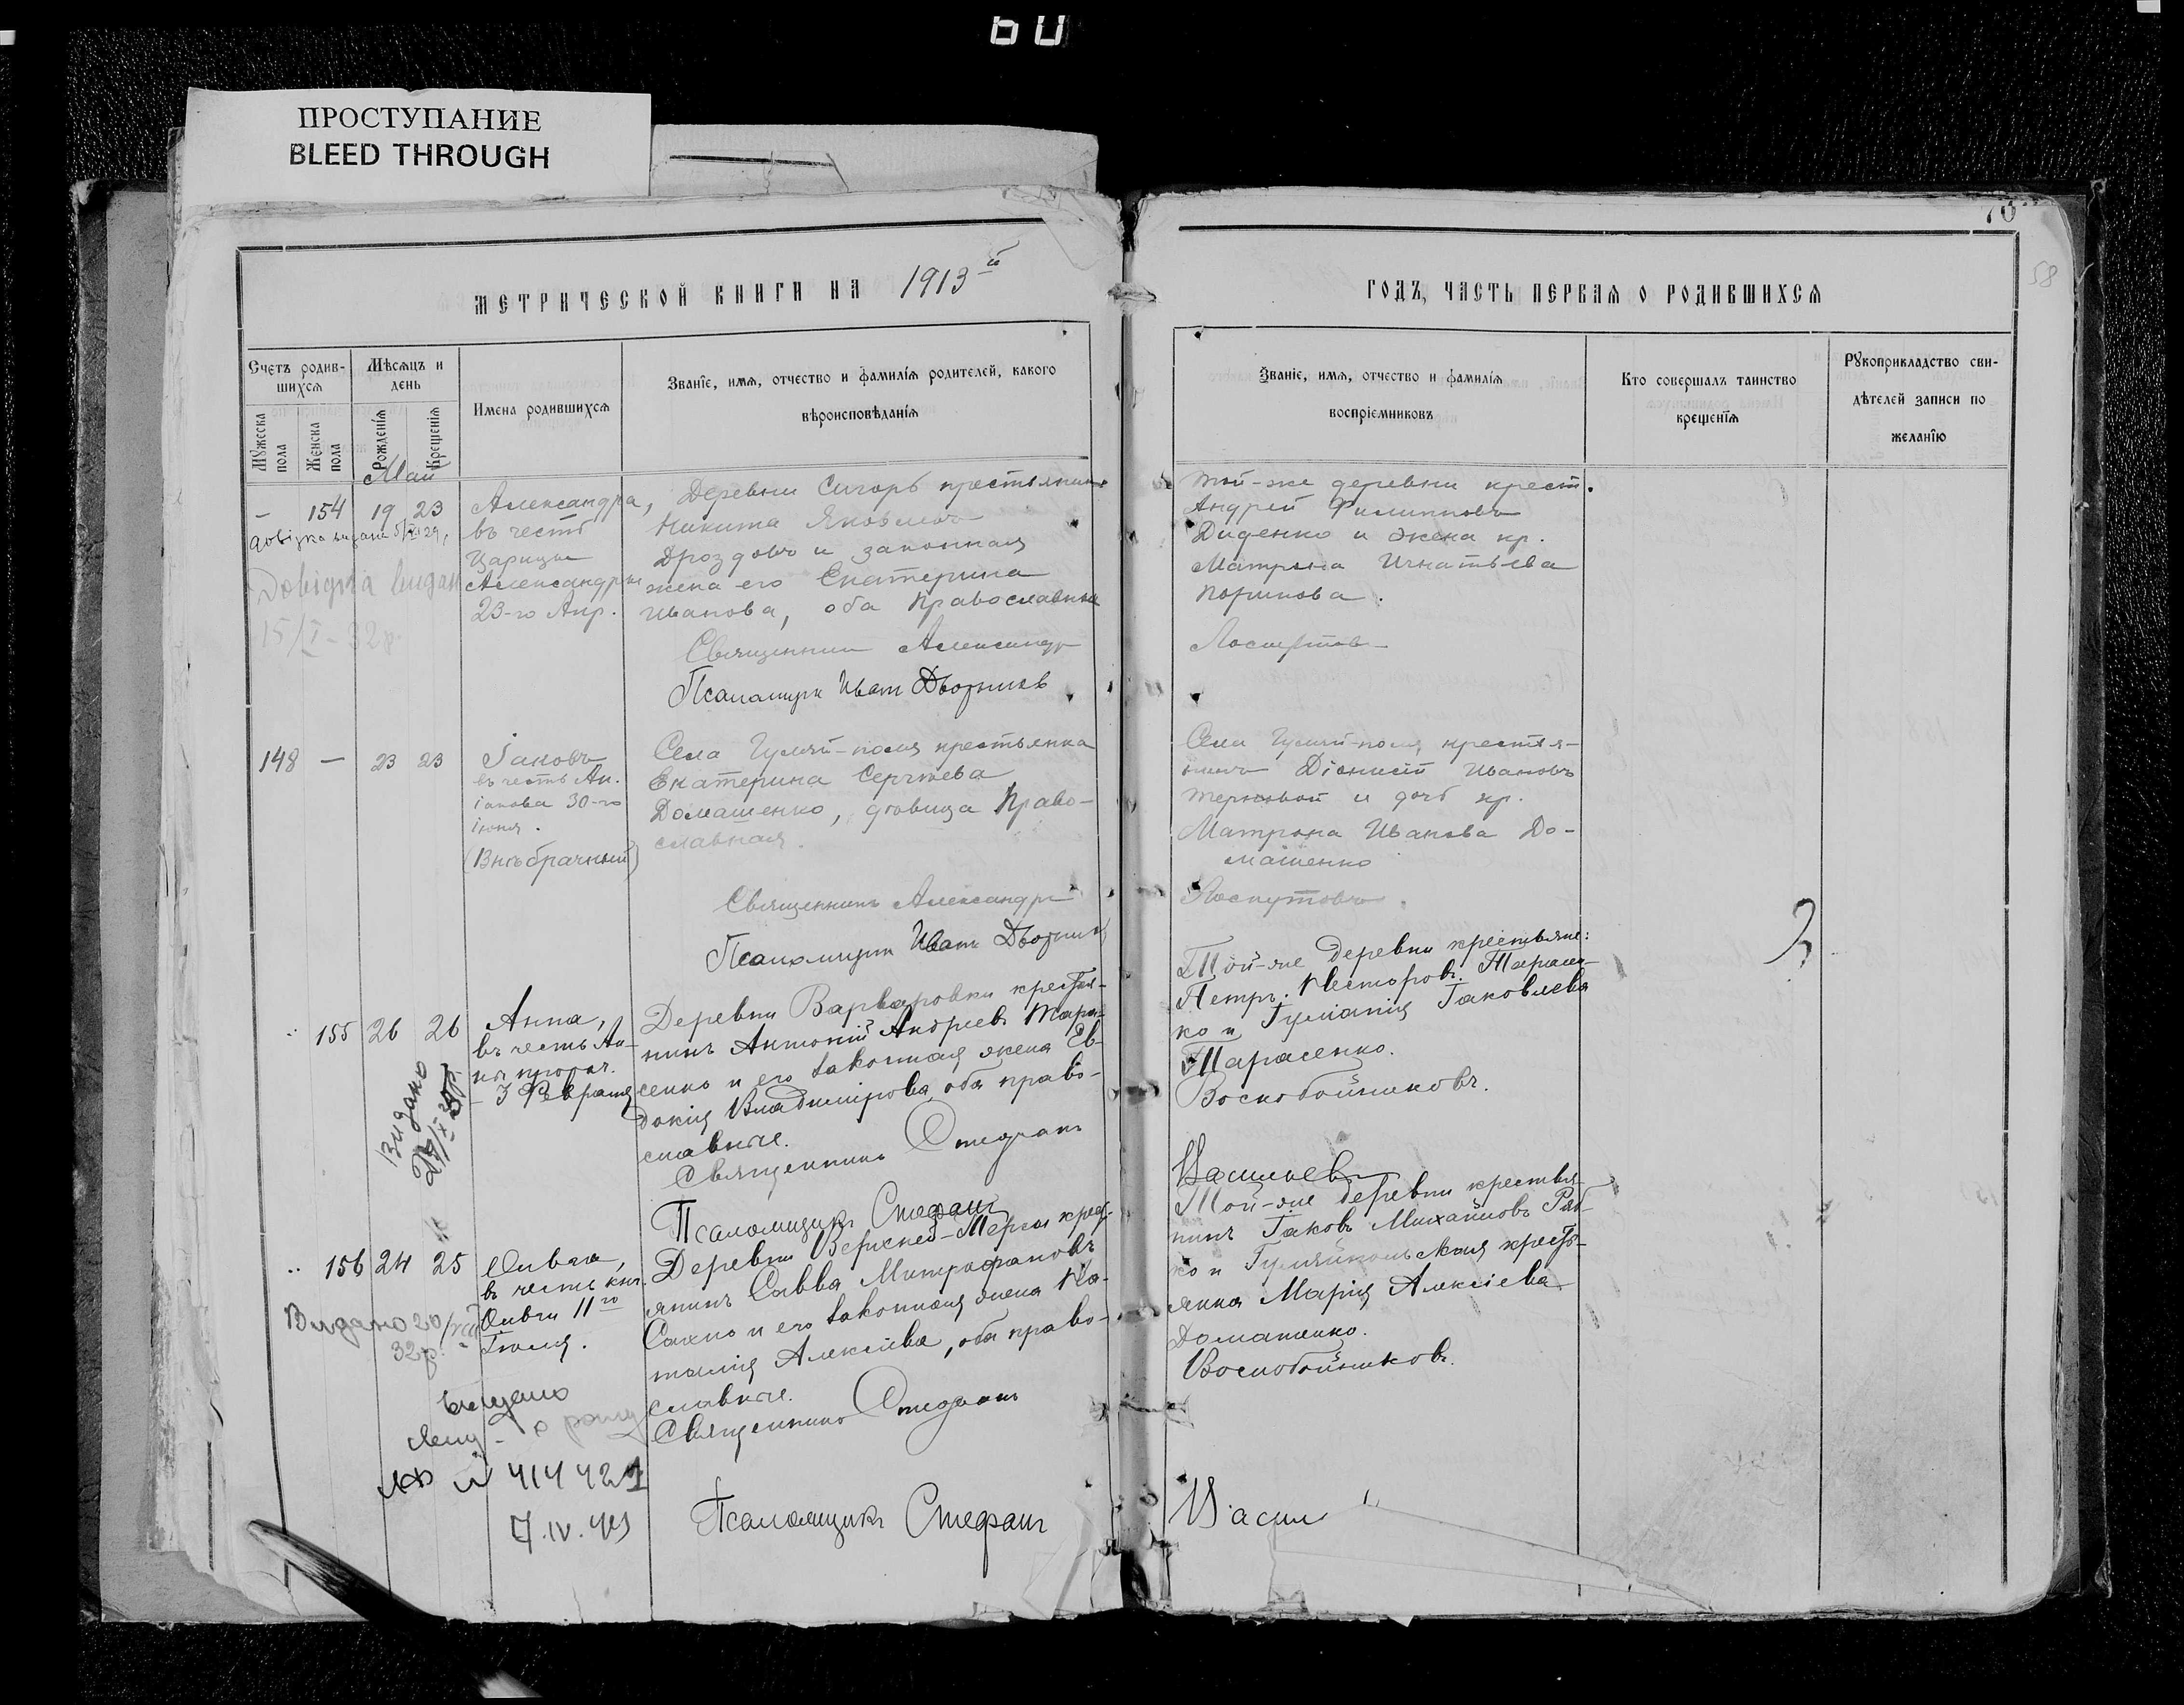 60
ПРОСТУПАНИЕ
BLEED THROUGH
70
58
МЕТРИЧЕСКОЙ КНИГИ НА 1913й
ГОДЪ, ЧАСТЬ ПЕРВАЯ О РОДИВШИХСЯ
Счетъ родив-
шихся
Мѣсяцъ и
день
Мужеска
пола
Женска
пола
Рожденїя
Крещенїя
Имена родившихся
Званїе, имя, отчество и фамилїя родителей, какого
вѣроисповѣданїя
Званїе, имя, отчество и фамилїя
воспрїемниковъ
Кто совершалъ таинство
крещенїя
Рукоприкладство сви-
дѣтелей записи по
желанїю
Май
- 154 19 23
Александра,
въ честь
Царицы
Александры
23-го Апр.
Деревни крестьянинъ
Никита Яковлевъ
Дроздовъ и законная
жена его Екатерина
Иванова, оба православные
Священникъ Александръ
Псаломщик Иван Дворник
той-же деревни крест.
Андрей Филипповъ
Диденко и жена кр.
Матрона Игнатьева
148 — 23 23
Іаковъ
въ честь Ап.
Іакова 30-го
Іюня.
(Внѣбрачный)
Села Гуляй-поля крестьянка
Екатерина Сергѣева
Домашенко, дѣвица право-
славная.
Священникъ Александръ
Псаломщик Иван Дворник
Села Гуляй-поля, крестья-
нинъ Діонисій Ивановъ
и дочь кр.
Матрона Иванова До-
машенко
155 26 26
Анна,
въ честь Ан-
ны пророч.
- 3 Февраля
Видано
Деревни Варваровки крестья-
нинъ Антоній Андреевъ Тара-
сенко и его законная жена Ев-
докія Владимірова, оба право-
славные.
Священникъ Стефанъ
Псаломщикъ Стефанъ
Той-же деревни крестьяне:
Петръ Несторовъ Тарасен-
ко и Гуліанія Іаковлева
Тарасенко.
Воскобойниковъ.
Васильевъ
156 24 25
Ольга,
въ честь кн.
Ольги 11го
Іюля.
Видано 20/VII
32р.
Деревни Верхней-Терсы крест-
янинъ Савва Митрофановъ
Сахно и его законная жена На-
талія Алексіева, оба право-
славные.
Священникъ Стефанъ
Псаломщикъ Стефанъ
Той-же деревни крестья-
нинъ Іаковъ Михайловъ Ряб-
ко и Гуляйпольская крест-
янка Марія Алексіева
Домашенко.
Воскобойниковъ.
Васил
Видано